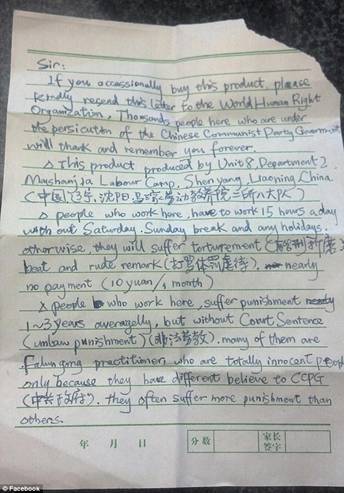 Sir:
If you occassionally buy this product, please
kindly resend this letter to the World Human Right
Organization. Thousands people here who are under
the persicution of the Chinese Communist Party Government
will thank and remember you forever.
△ This product produced by Unit 8, Department 2
Mashanjia Labour Camp, Shen yang Liaoning, China
(中国辽宁,沈阳,马家劳动教养院二所八大队)
△ people who work here, have to work 15 hours a day
with out Saturday. Sunday break and any holidays.
otherwise, they will suffer torturement
beat and rude remark (打骂体罚虐待). nearly
no payment (10 yuan/1 month)
△ people who work here, suffer punishment
1~3 years averagelly, but without Court Sentence
(unlaw punishment) (非法劳教). many of them are
Falun gong practitioner, who are totally innocent people
only because they have different believe to CCPG
(中共政府). they often suffer more punishment than
others.
年 月 日 分数 家长签字
© Facebook